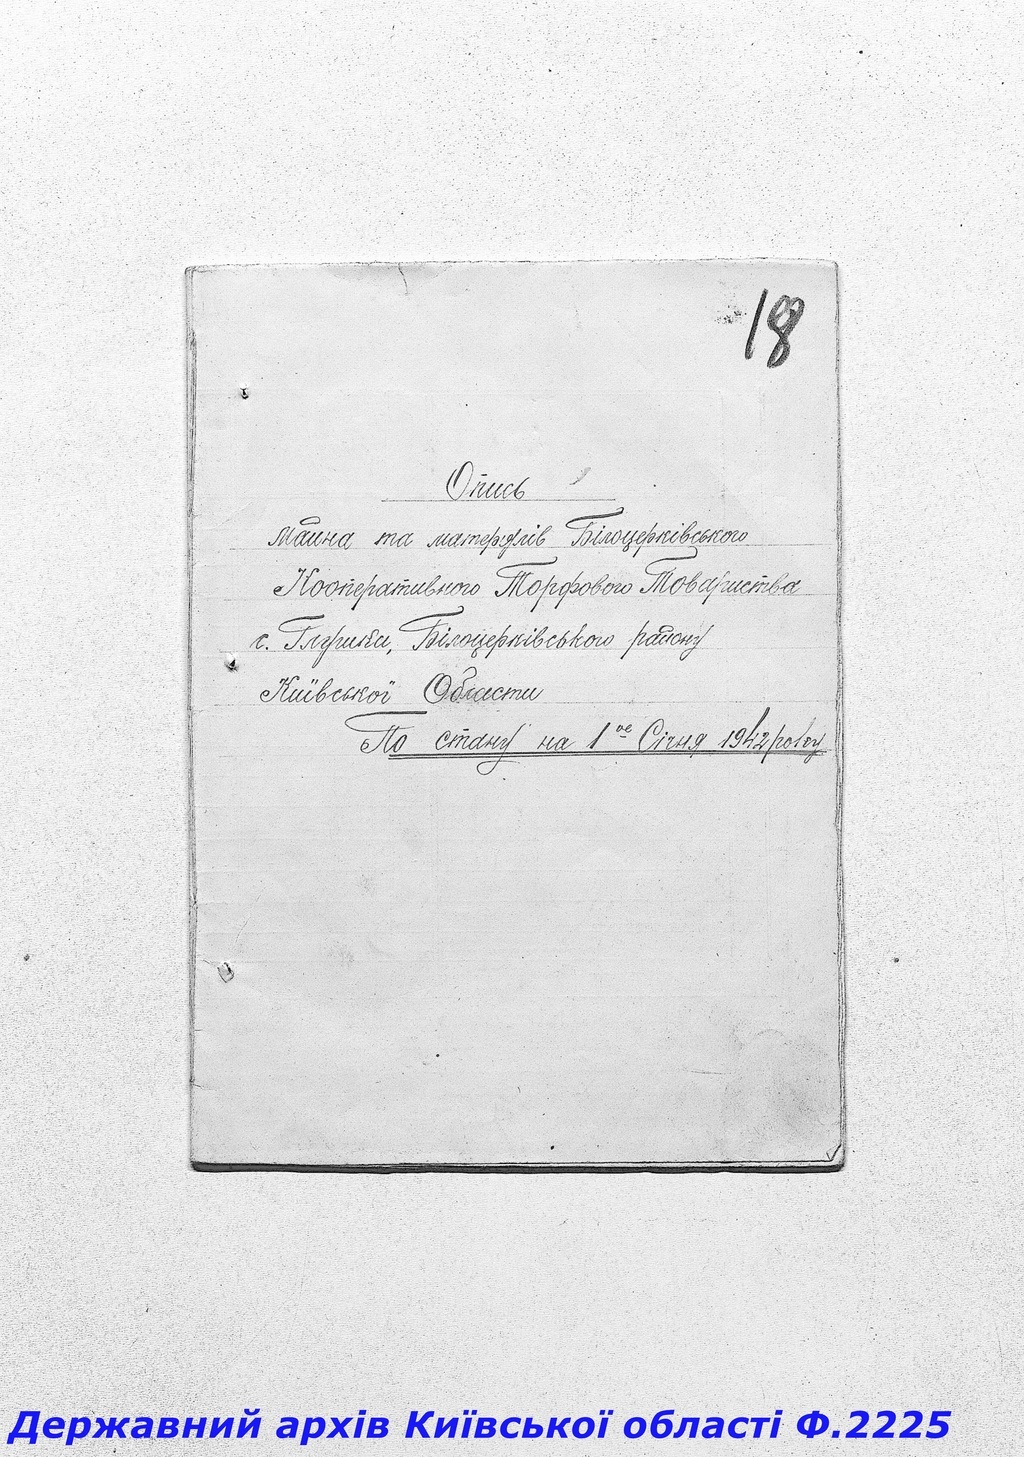 18
Опись
майна та матерялів Білоцерківського
Кооперативного Торфового Товариства
с. Глушки, Білоцерківського району
Київської Области
По стану на 1ое Січня 1942 року
Державний архів Київської області Ф.2225